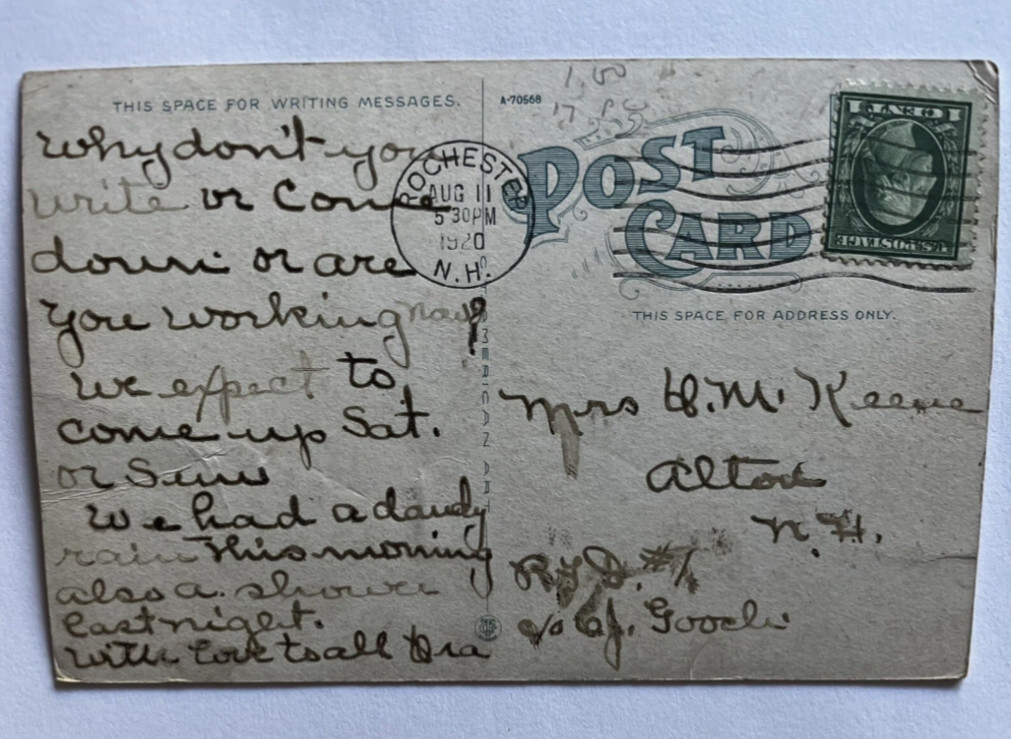 THIS SPACE FOR WRITING MESSAGES.
Why don't you
write or Come
down or are
you working now?
We expect to
come up Sat.
or Sun
We had a dandy
rain this morning
also a shower
last night.
With Love to all
A-70568
POST
CARD
ROCHESTER
AUG 11
5 30 PM
1920
N.H.
1 CENT 1
U.S. POSTAGE
THIS SPACE FOR ADDRESS ONLY.
Mrs H. M. Keene
Alton
N.H.
R.F.D. #1
c/o Gooch